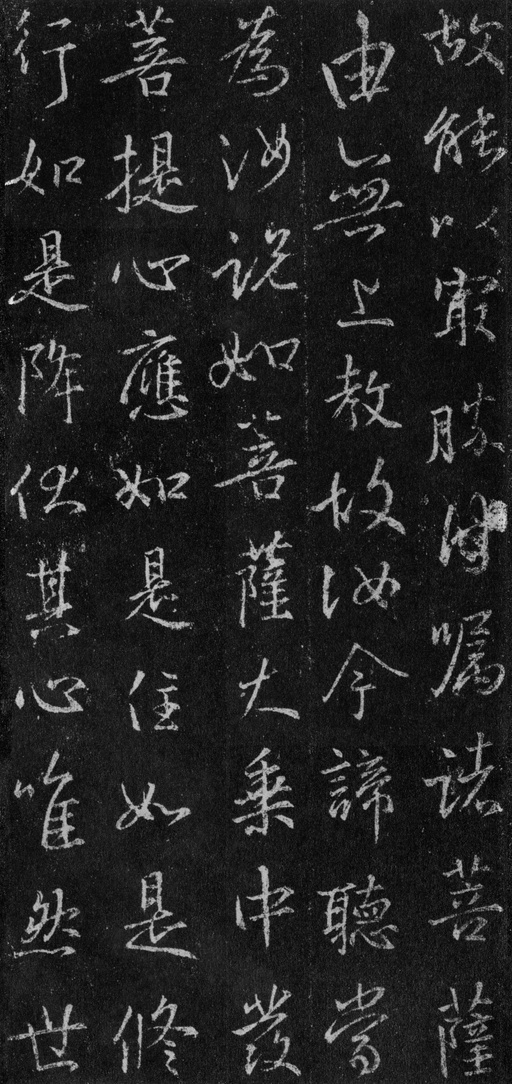 故能以最勝付囑諸菩薩
由無上教故汝今諦聽當
為汝說如菩薩大乘中發
菩提心應如是住如是修
行如是降伏其心唯然世